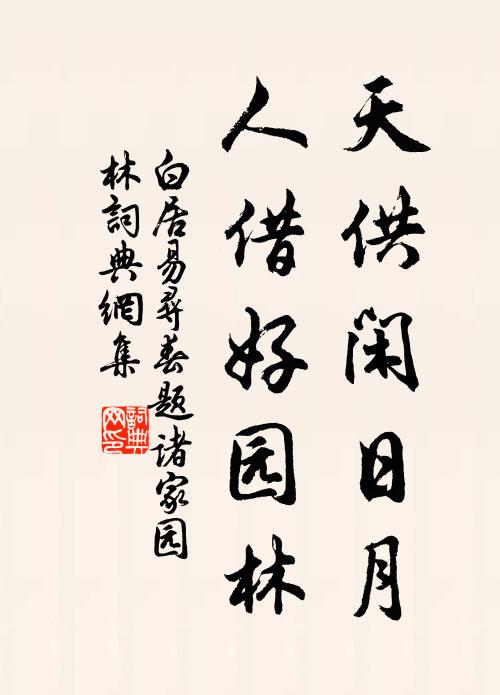 天供闲日月
人借好园林
白居易尋春题诸家园
林詞典網集
詞典网印